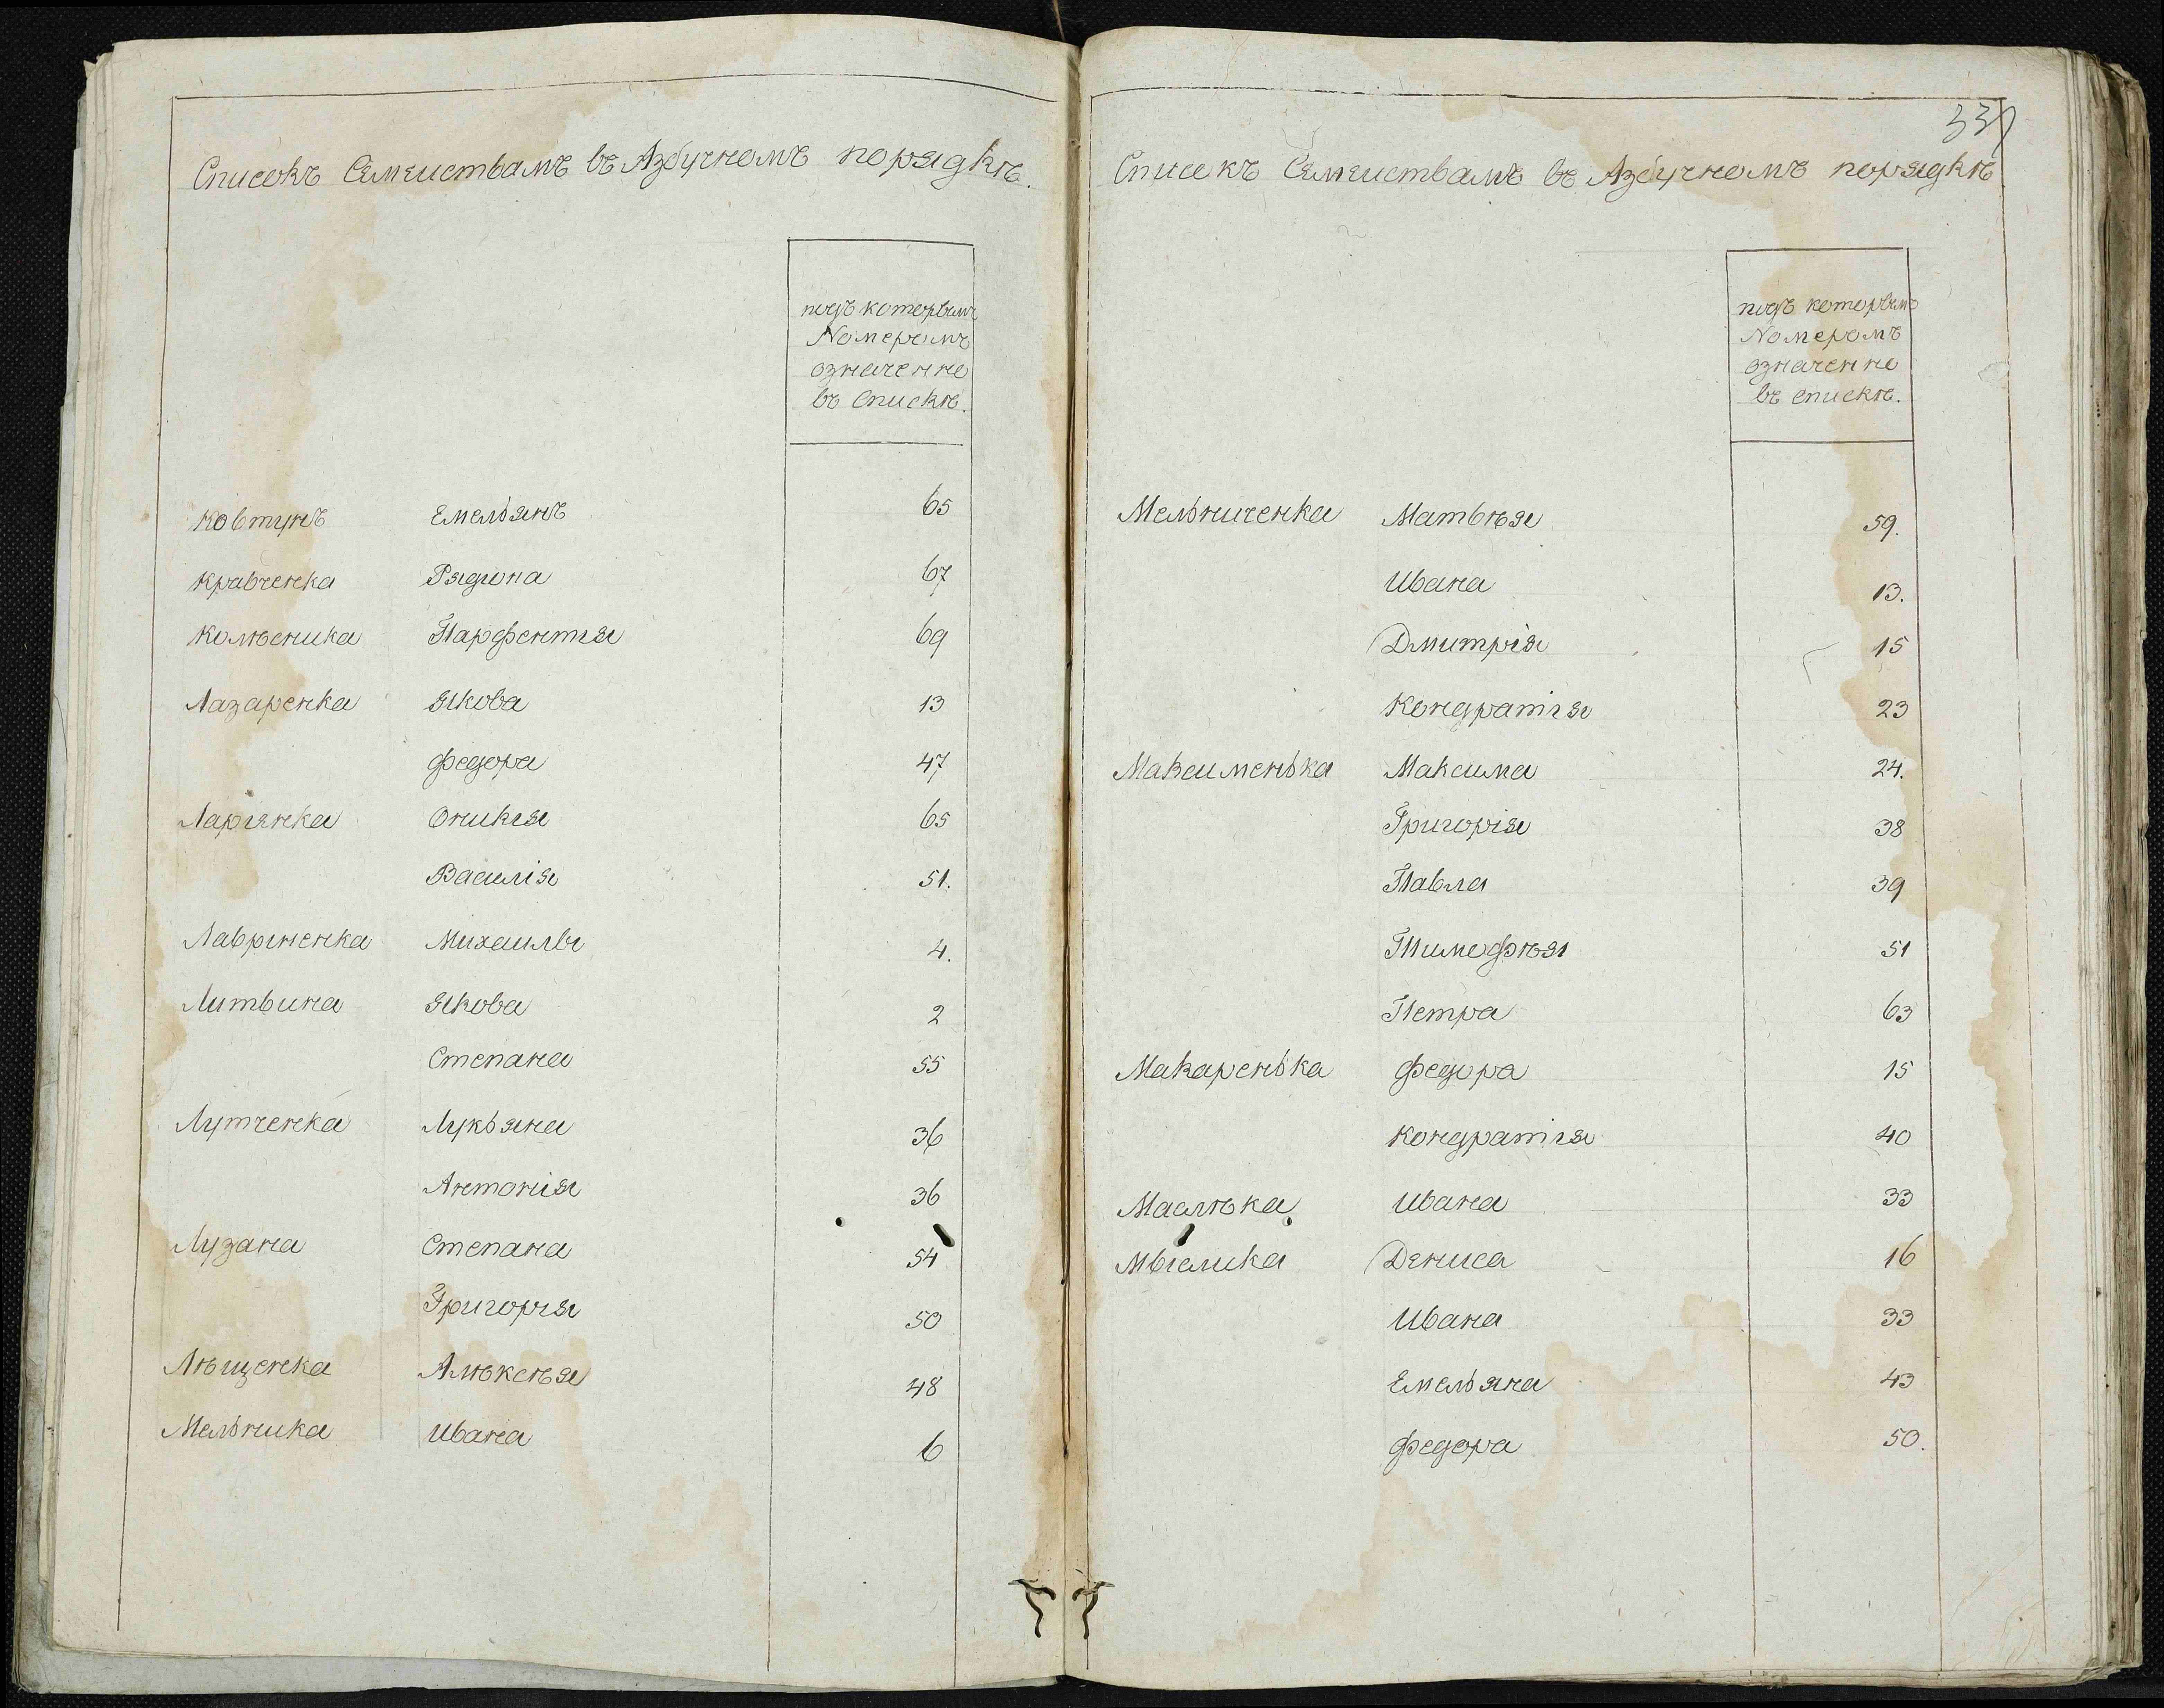 Списокъ Семеиствамъ въ Азбучномъ порядкѣ.
подъ которымъ
Номеромъ
означенно
въ Спискѣ.
Ковтунъ Емельянъ 65
Кравченка Радиона 67
Колѣсника Парфентия 69
Лазаренка Якова 13
Федора 47
Ларіянка Оникія 65
Василія 51.
Лавриненка Михаилы 4.
Литвина Якова 2
Степана 55
Лутченка Лукьяна 36
Антонія 36
Лузана Степана 54
Григорія 50
Лѣщенка Алѣксѣя 48
Мельника Ивана 6
337
Списокъ Семеиствамъ въ Азбучномъ порядкѣ
подъ которымъ
Номеромъ
означенно
въ Спискѣ.
Мельниченка Матвѣя 59.
Ивана 13.
Дмитрія 15
Кондратія 23
Максименька Максима 24.
Григорія 38
Павла 39
Тимофѣя 51
Петра 63
Макаренька Федора 15
Кондратія 40
Маслѣка Ивана 33
Мыслика Дениса 16
Ивана 33
Емельяна 43
Федора 50.